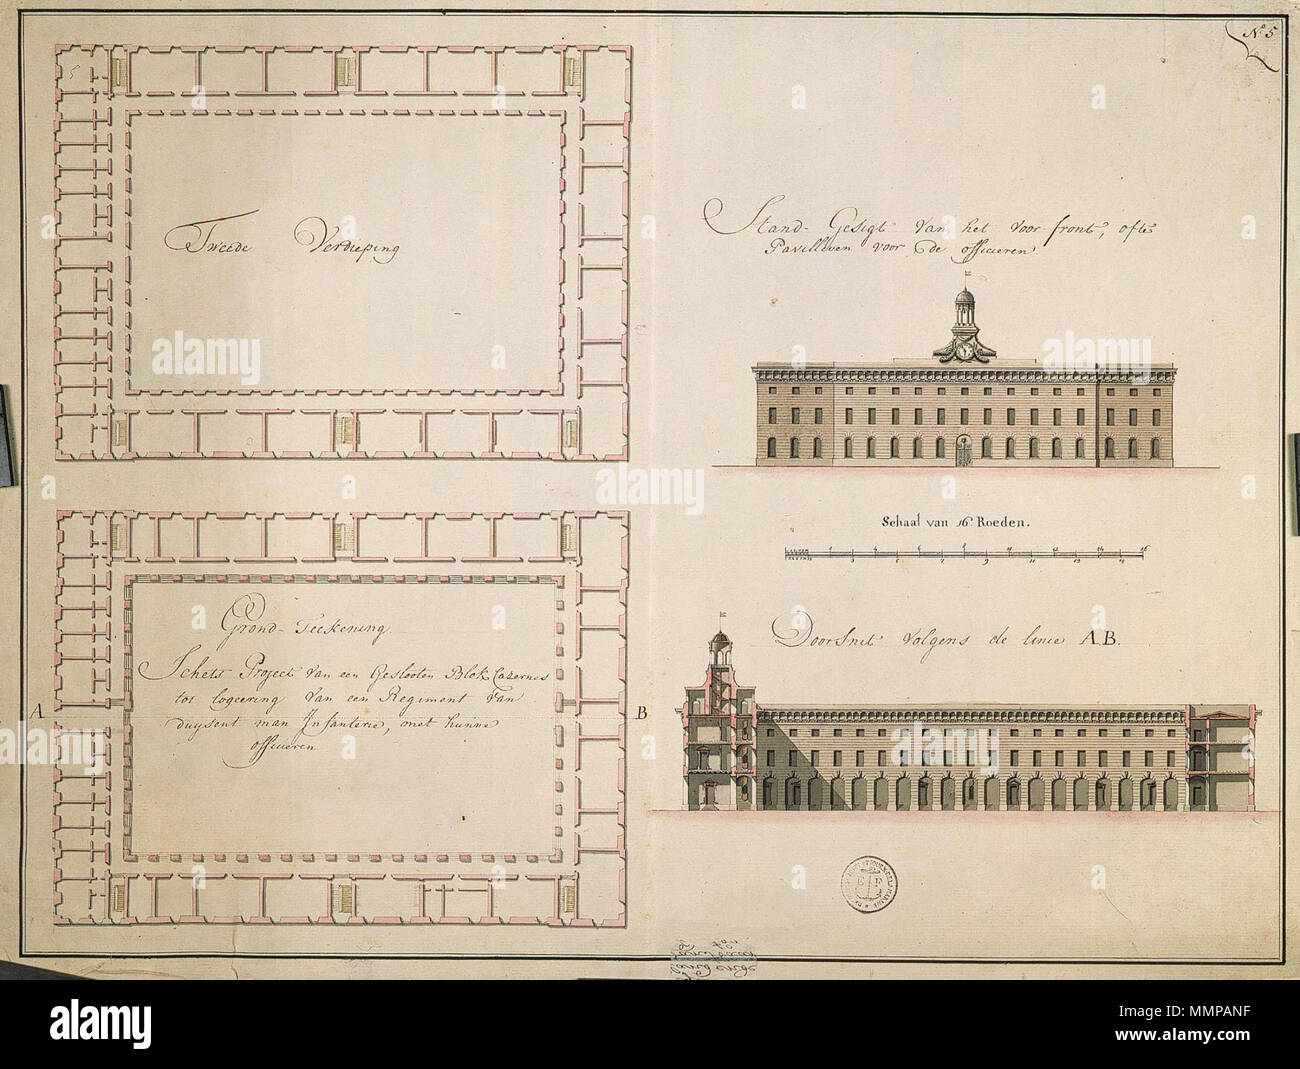 Nº 5
5
Tweede Verdieping
Stand-Gesigt van het voor front, ofte
Pavilloen voor de officieren
Schaal van 16 Roeden.
Grond-Teekening
Schets Project van een Geslooten Blok Cazernes
tot logeering van een Regiment van
duysent man Infanterie, met hunne
officieren
A
B
Doorsnit volgens de linie A.B.
E F
alamy
Image ID: MMPANF
www.alamy.com